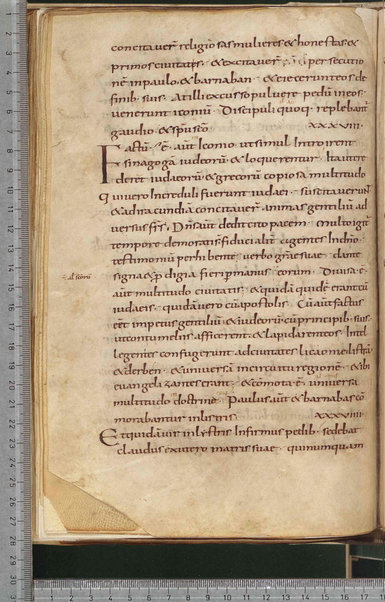 concitauer̄ religiosas mulieres & honestas &
primos ciuitates · & excitauer̄ persecutio
nē in paulo · & barnaban · & eiecerunt eos de
finib · suis · At illi excusso puluere pedū in eos ·
uenerunt iconiū · Discipuli quoq · replebant̄
gaudio & sp̄u sc̄o XXXVIII ·
Factū · ē · aūt Iconio ut simul Introirent
sinagogā iudeorū & loquerentur · Ita ut cre
deret iudaeorū & grecorū copiosa multitudo
q uiuero Increduli fuerunt iudaei · suscitauerunt̄
& ad iracundiā concitauer̄ animas gentiliū ad
uersus fr̄s · Dn̄s aut̄ dedit cito pacem · Multo igit̄
tempore demorati sunt fiducialit̄ · agentes In dn̄o ·
testimoniū perhibente uerbo gr̄ae suae · dante
signa & prodigia fieri p manus eorum · Diuisa · ē ·
aūt multitudo ciuitatis · & quidā quidē erant cū
iudaeis · quidā uero cū apostolis · Cū aūt factus
eēt impetus gentiliū & iudeorū cū principib · suis ·
ut contumeliis afficerent · & lapidarent eos · Intel
legentes confugerunt ad ciuitates licaoniae listrā
& derben · & uniuersā in circuitu regionē · & ibi
euangelizantes erant · & cōmota · ē · uniuersa
multitudo doctrinae · Paulus aūt & barnabas cō
morabantur in listris · XXXVIIII ·
Et quidā uir in lystris Infirmus pedib · sedebat
claudus ex utero matris suae · qui numquam